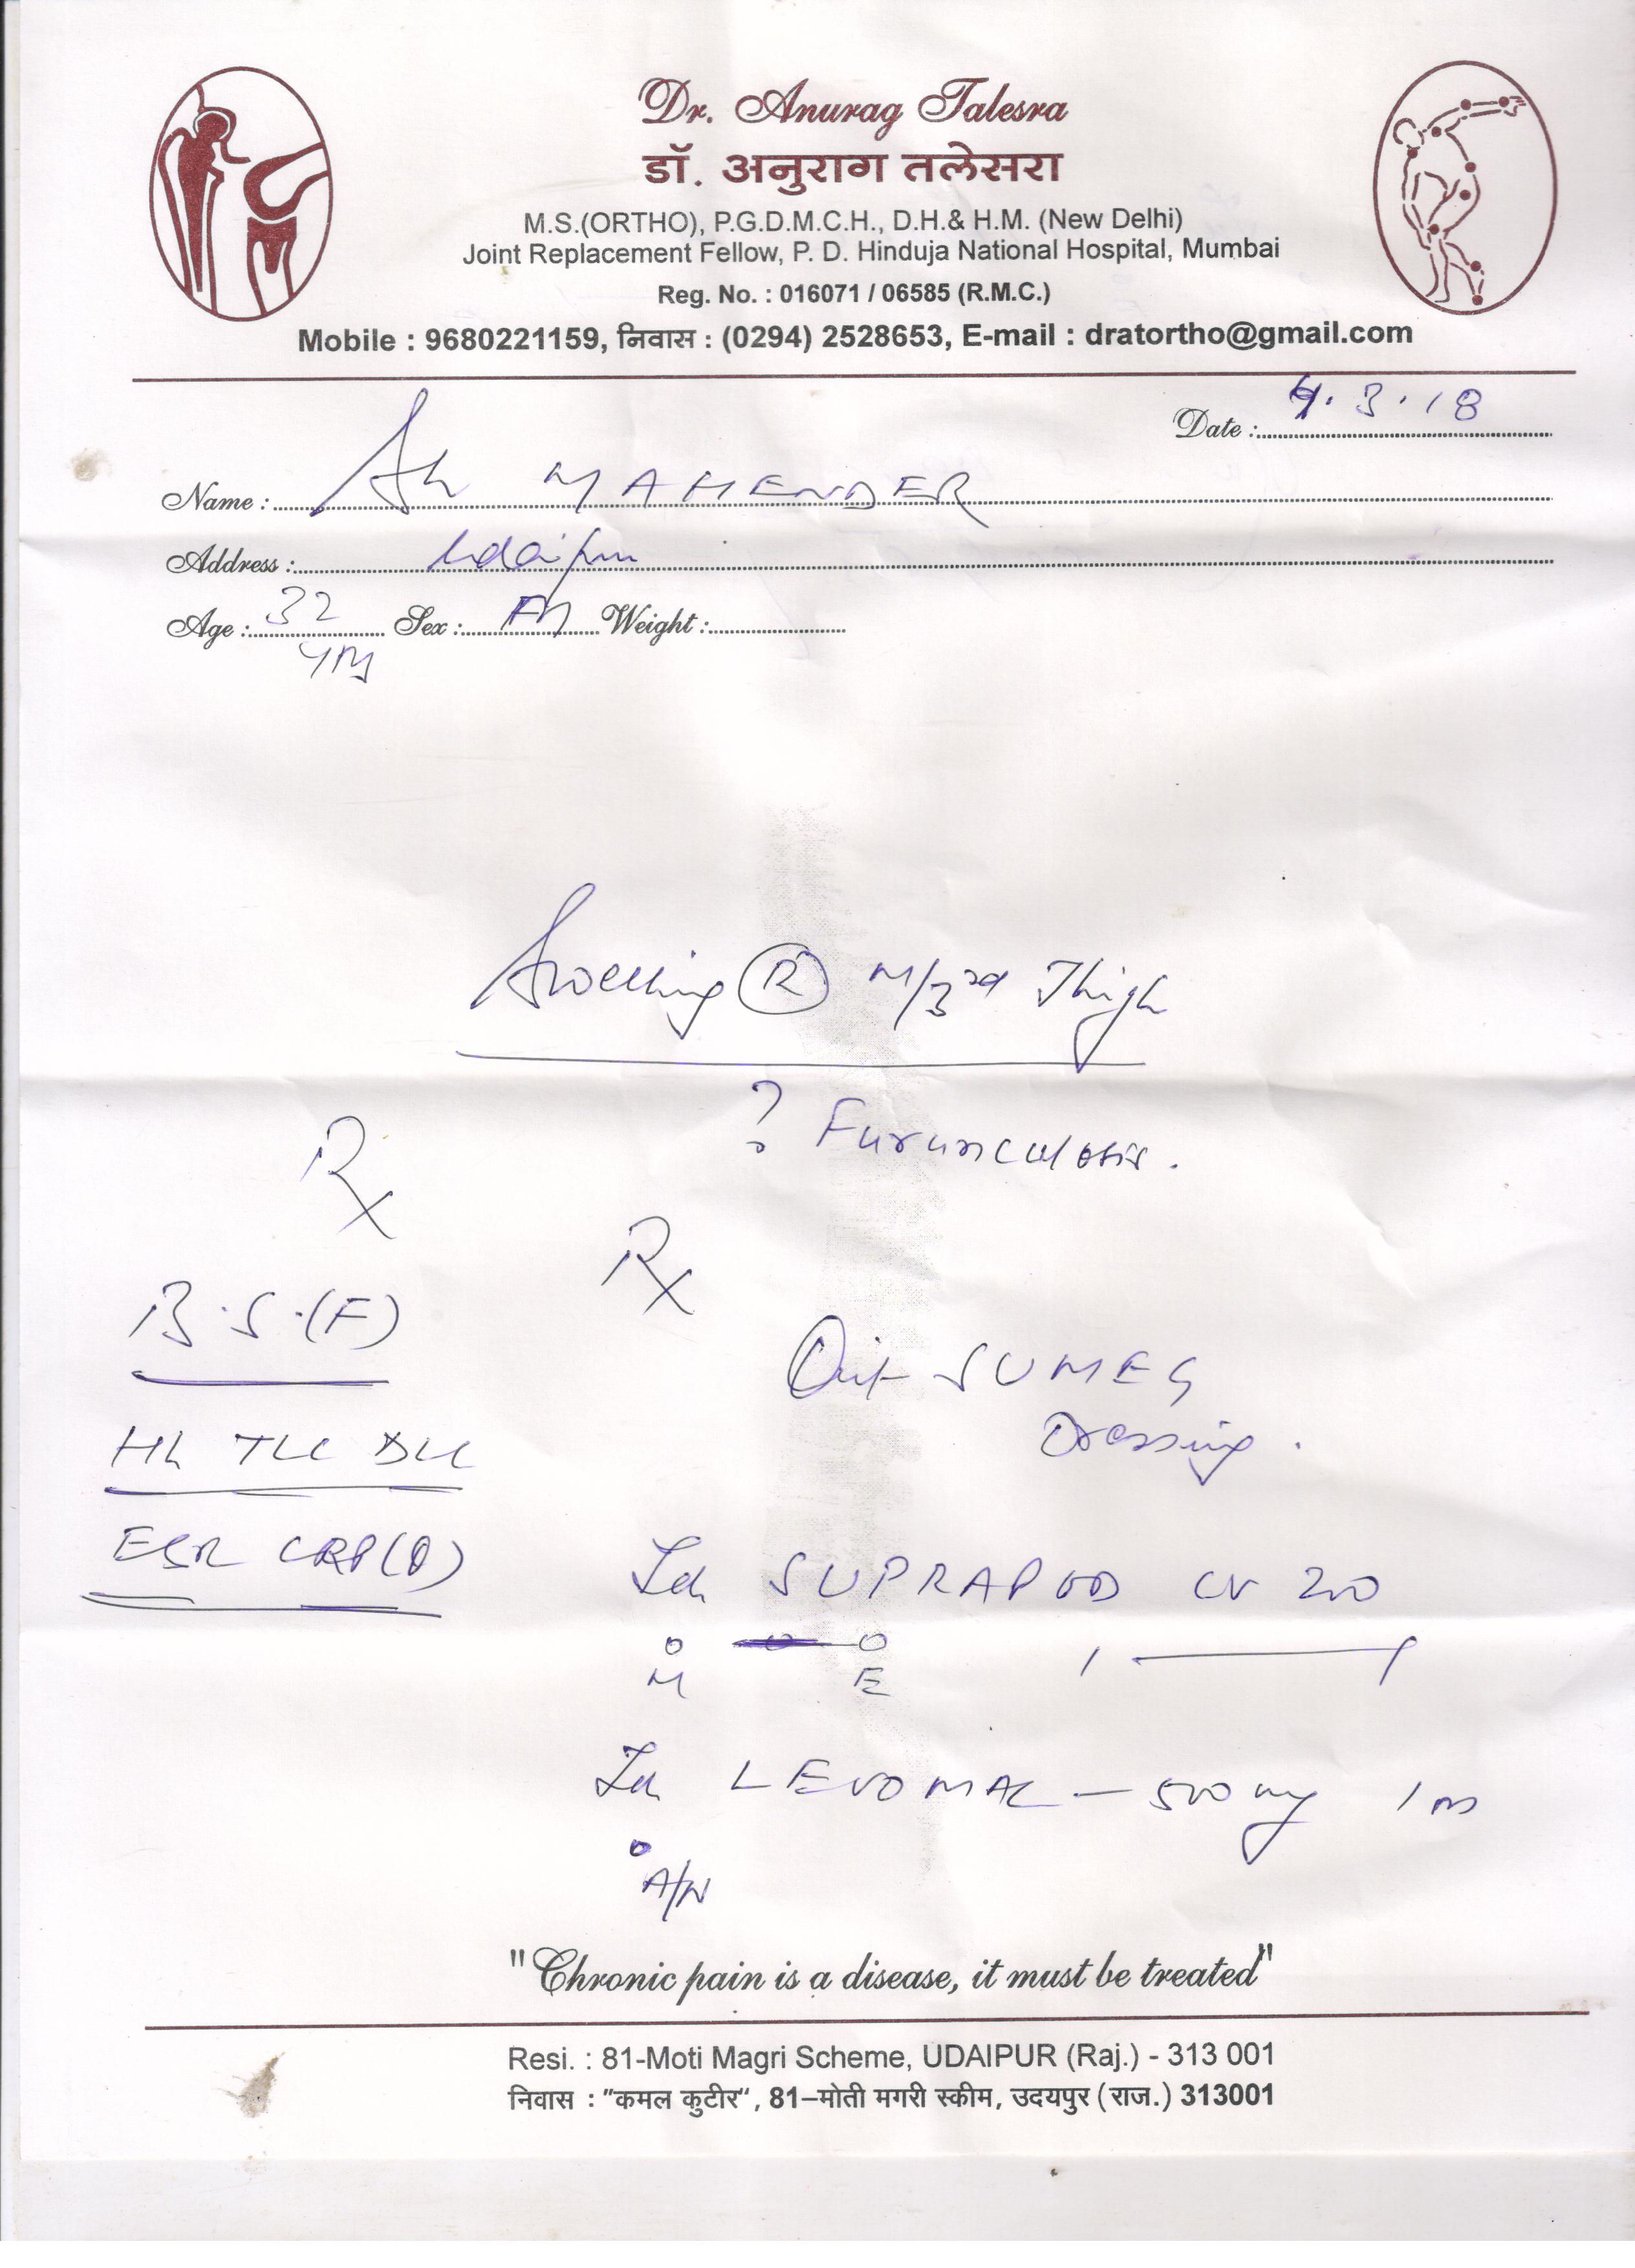 Dr. Anurag Talesra
डॉ. अनुराग तलेसरा
M.S.(ORTHO), P.G.D.M.C.H., D.H.& H.M. (New Delhi)
Joint Replacement Fellow, P. D. Hinduja National Hospital, Mumbai
Reg. No. : 016071 / 06585 (R.M.C.)
Mobile : 9680221159, निवास : (0294) 2528653, E-mail : dratortho@gmail.com
Date : 4.3.18
Name : Sh MAHENDER
Address : Udaipur
Age : 32 Sex : M Weight :
yrs
Swelling (R) M/3rd Thigh
? Furunculosis.
Rx
Rx
B.S.(F)
Oint SUMEG
Dressing.
Hb TLC DLC
ESR CRP(Q)
Tab SUPRAPOD CV 200
0 0 1
M E
Tab LEVOMAC - 500 mg
0
A/N
"Chronic pain is a disease, it must be treated"
Resi. : 81-Moti Magri Scheme, UDAIPUR (Raj.) - 313 001
निवास : "कमल कुटीर", 81–मोती मगरी स्कीम, उदयपुर (राज.) 313001